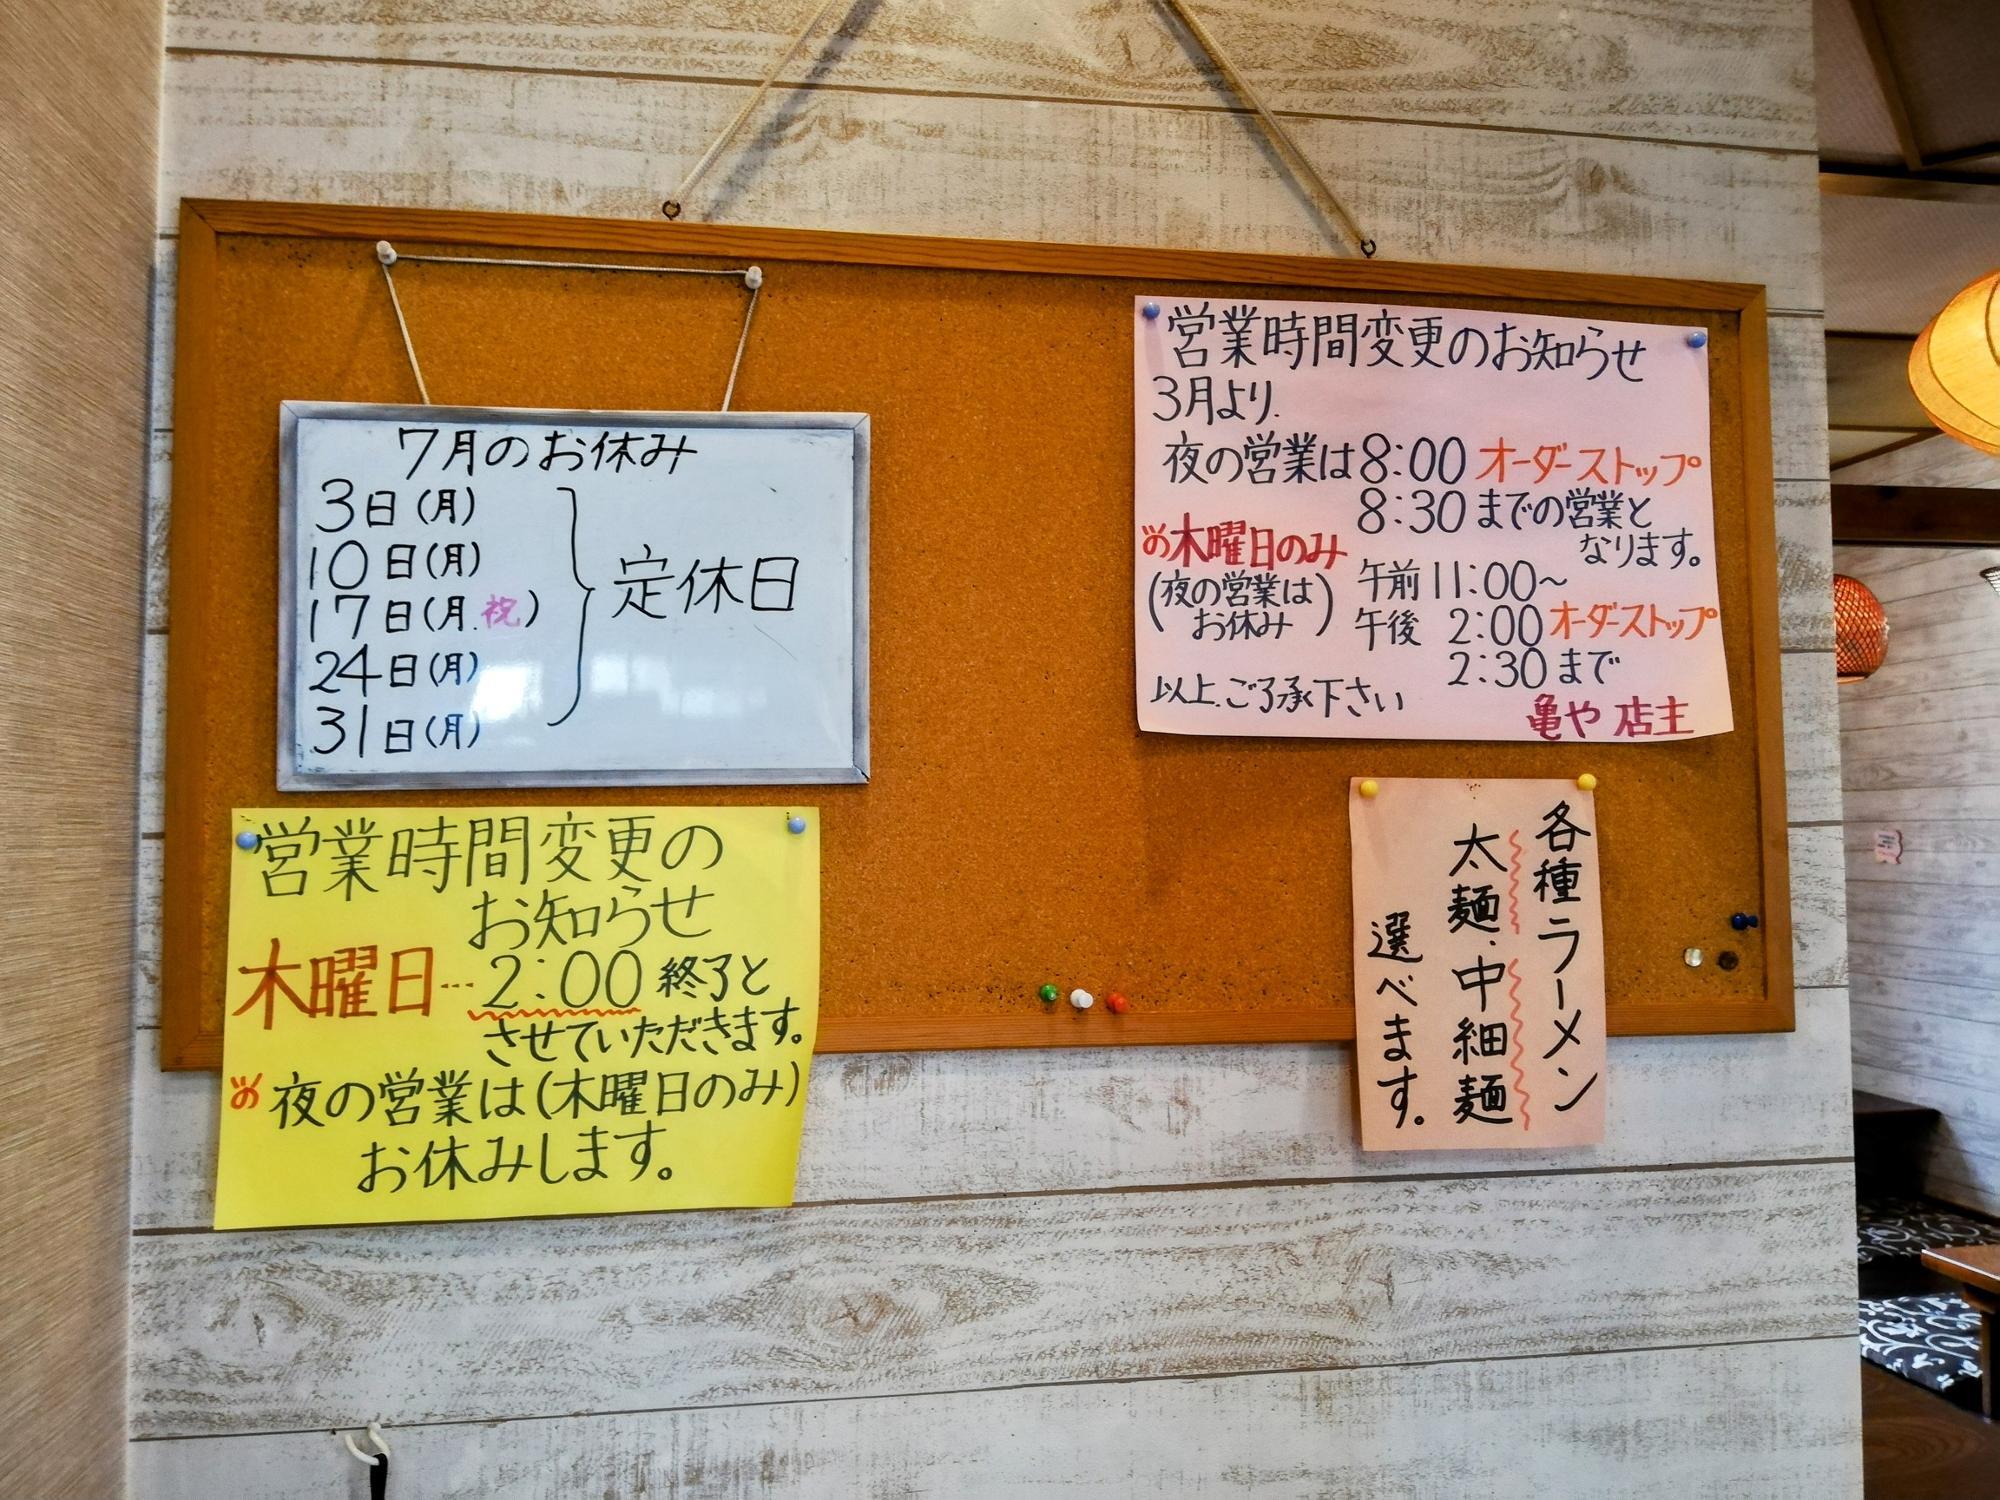 7月のお休み
3日(月)
10日(月)
17日(月.祝)
24日(月)
31日(月)
定休日
営業時間変更の
お知らせ
木曜日…2:00終了と
させていただきます。
※夜の営業は(木曜日のみ)
お休みします。
営業時間変更のお知らせ
3月より.
夜の営業は8:00オーダーストップ
8:30までの営業と
なります。
※木曜日のみ
(夜の営業は
お休み)
午前11:00~
午後 2:00オーダーストップ
2:30まで
以上.ご了承下さい
亀や 店主
各種ラーメン
太麺.中細麺
選べます。